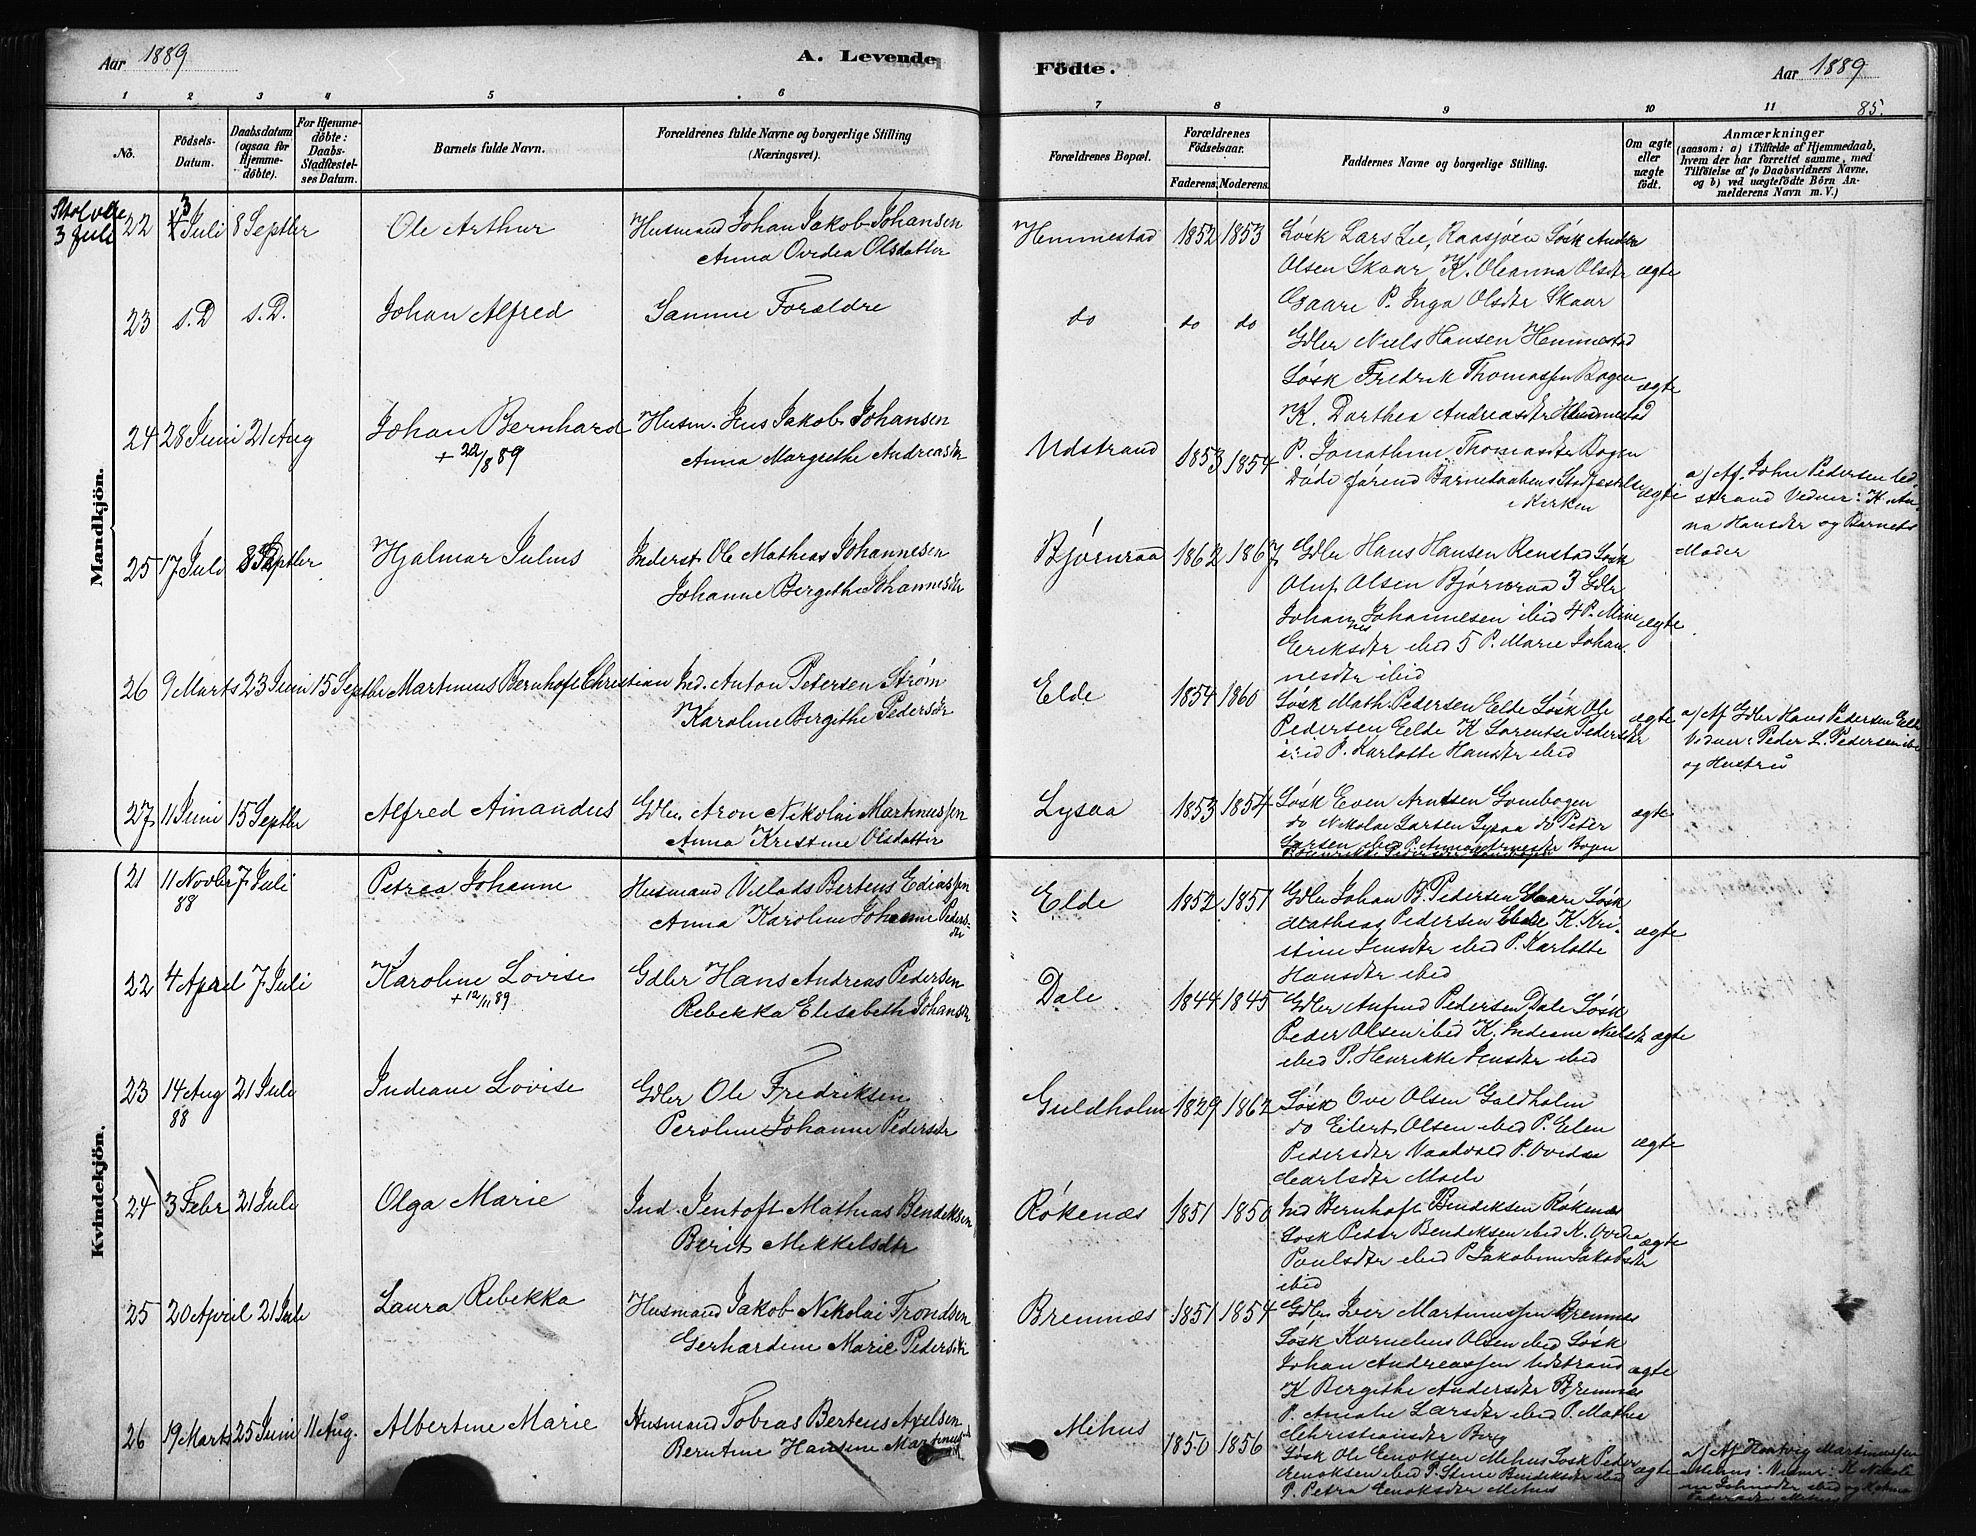 Aar 1889
A. Levende
Födte.
Aar 1889
85.
1 2 3 4 5 6 7 8 9 10 11
No.
Födsels-Datum.
Daabsdatum (ogsaa for Hjemme-döbte).
For Hjemme-döbte: Daabs-Stadfæstel-ses Datum.
Barnets fulde Navn.
Forældrenes fulde Navne og borgerlige Stilling (Næringsvei).
Forældrenes Bopæl.
Forældrenes Födselsaar.
Faderens. Moderens.
Faddernes Navne og borgerlige Stilling.
Om ægte eller uægte födt.
Anmærkninger
(saasom: a) i Tilfælde af Hjemmedaab,
hvem der har forrettet samme, med
Tilföielse af to Daabsvidners Navne,
og b) ved uægtefödte Börn An-
melderens Navn m. V.)
Mandkjön.
3 Juli
22 3 Juli 8 Septbr Ole Arthur Husmand Johan Jakob Johansen
Anna Ovidea Olsdatter
Hemmestad 1852 1853 Løsk Lars Lie, Raasjøen Løsk Anders
Olsen Skaar K. Oleanna Olsdtr ægte
Gaare P. Inga Olsdtr Skaar
23 s.D s.D. Johan Alfred Samme Forældre
do do do
Gdbr Niels Hansen Hemmestad
Løsk Fredrik Thomassen Bogen ægte
K. Dorthea Andreasdtr Hemmestad
P. Jonathine Thomasdtr Bogen
24 28 Juni 21 Aug Johan Bernhard Husm. Jens Jakob Johansen
+ 22/8 89 Anna Margrethe Andreasdtr
Udstrand 1853 1854
Døde førend Barnedaabens Stadfæstelse ægte
i Kirken
a) Af John Pedersen Ud-
strand Vidner: K. An-
na Hansdtr og Barnets
Moder
25 17 Juli 8 Septbr Hjalmar Julius Inderst Ole Mathias Johannesen
Johanne Bergithe Johannesdtr
Bjørnraa 1862 1867 Gdbr Hans Hansen Renstad Løsk
Oluf Olsen Bjørnraa 3 Gdbr
Johan Johannesen ibid 4 P. Mine ægte
Eriksdtr ibid 5 P. Marie Johan
nesdtr ibid
26 9 Marts 23 Juni 15 Septbr Martinus Bernhoft Christian Ind. Anton Petersen Strøm
Karoline Bergithe Pedersdtr
Elde 1854 1860 Løsk Math. Pedersen Elde Løsk Ole
Pedersen Elde K Lorentse Pedersdtr ægte
ibid P. Karlotte Hansdtr ibid
a) Af Gdbr Hans Pedersen Elde
Vidner: Peder L. Pedersen ibid
og Hustru
27 11 Juni 15 Septbr Alfred Amandus Gdbr. Aron Nikolai Martinussen
Anna Kristine Olsdatter
Lysaa 1853 1854 Løsk Even Arntsen
do Nikolai Larsen Lysaa do Peter ægte
Larsen ibid P. Anna Bogen
Kvindekjön.
21 11 Novbr 88 7 Juli Petrea Johanne Husmand Villads Bertens Ediassen
Anna Karoline Johanne Peders-
dtr
Elde 1852 1851 Gdbr Johan B. Pedersen Løsk
Mathias Pedersen Elde K. Kri- ægte
stine Jensdtr ibid P. Karlotte
Hansdtr ibid
22 4 April 7 Juli Karoline Lovise Gdbr Hans Andreas Pedersen
+ 12/11 89 Rebekka Elisabeth Johansdtr
Dale 1844 1845 Gdbr Anfind Pedersen Dale Løsk
Peder Olsen ibid K. Indiane Nielsdtr ægte
ibid P. Henrikke Jensdtr ibid
23 14 Aug 88 21 Juli Indiane Lovise Gdbr Ole Fredriksen
Peroline Johanne Pedersdtr
Guldholm 1829 1862 Løsk Ove Olsen Guldholm
do Eilert Olsen ibid P. Elen
Pedersdtr P. Ovidia ægte
Carlsdtr
24 3 Febr 21 Juli Olga Marie Ind. Jentoft Mathias Bendiksen
Berit Mikkelsdtr
Røkenæs 1851 1850 Ind Bernhoft Bendiksen Røkenæs
Løsk Peter Bendiksen ibid K. Ovidia ægte
Poulsdtr ibid P Jakobine Jakobsdtr
ibid
25 20 April 21 Juli Laura Rebekka Husmand Jakob Nikolai Trondsen
Gerhardine Marie Pedersdtr
Bremnæs 1851 1854 Gdbr Iver Martinussen Bremnæs
Løsk Kornelius Olsen ibid Løsk
Johan Andreassen Udstrand ægte
K Bergithe Andersdtr Bremnæs
P. Amalie Larsdtr ibid P. Mathea
Christiansdtr Berg
26 19 Marts 25 Juni 11 Aug. Albertine Marie Husmand Tobias Bertens Axelsen
Berntine Hansine Martinusd
Mehus 1850 1856 Løsk Ole Enoksen Mehus Løsk Peder
Enoksen ibid P. Stine Bendiksdtr ibid ægte
P. Petra Enoksdtr Mehus
a) Af Hartvig Martinussen
Mehus. Vidner: K Nikoli
ne Johnsdtr ibid og
Pedersdtr Mehus